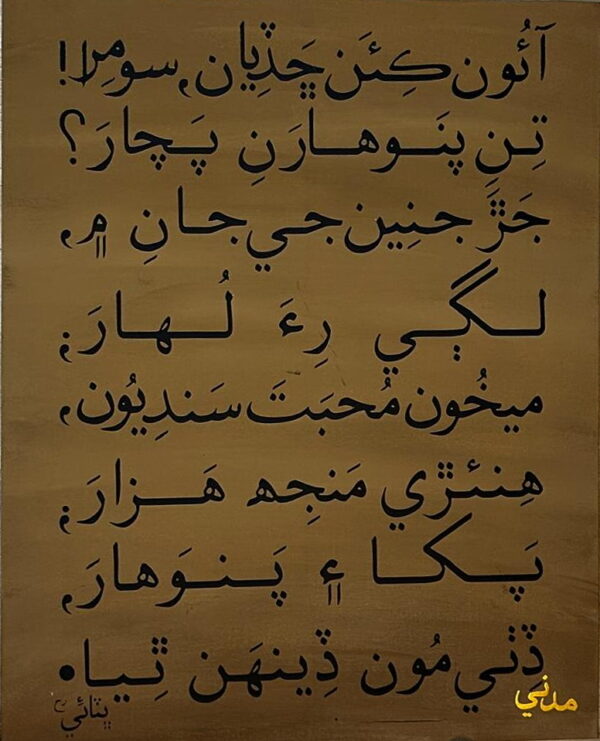 آئُون ڪِئَن ڇَڏِيان، سومِرا!
تِنِ پَنَوهارَنِ پَچارَ؟
جَڙَ جنِين جي جانِ ۾،
لڳي رِءَ لُهارَ؛
ميخُون مُحبَتَ سَندِيُون،
هِنئڙي مَنجِهہ هَزارَ؛
پَکا ۽ پَنوَهارَ،
ڏٺي مُون ڏِينهَن ٿِيا.
ڀٽائي رح
مدني